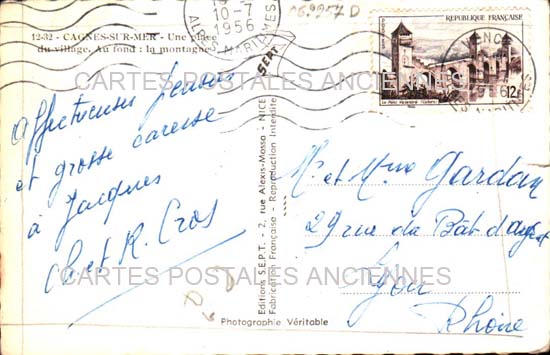 12-32 - CAGNES-SUR-MER - Une place
du village. Au fond : la montagne
10-7
1956
069907 D
RÉPUBLIQUE FRANÇAISE
Le Pont Valentré Cahors
12F
SEPT
CARTES POSTALES ANCIENNES
Affectueuses pensées
et grosse caresse
à Jacques
Cl. et R. Cros
Editions S.E.P.T. - 2, rue Alexis-Mossa - NICE
Fabrication Française - Reproduction Interdite
Mr et Mme Gardan
29 rue du Bât d'argent
Lyon
Rhône
CARTES POSTALES ANCIENNES
Photographie Véritable